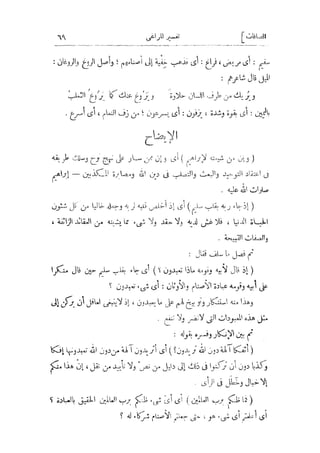 الصافات ] تفسير المراغى ٦٩
سقيم : أى مريض ، فراغ : أى فذهب خفية إلى أصنامهم ؛ وأصل الروغ والروغان :
الميل قال شاعرهم :
ويريك من طرف اللسان حلاوة ويروغ عنك كما يروغ الثعلب
باليمين : أى بقوة وشدة ، يزفون : أى يسرعون ؛ من زف النعام ، أى أسرع .
الإيضاح
( وإن من شيعته لإبراهيم ) أى وإن ممن سار على نهج نوح وسلك طريقه
فى اعتقاد التوحيد والبعث والتصلب فى دين الله ومصابرة المكذبين – إبراهيم
صلوات الله عليه .
( إذ جاء ربه بقلب سليم ) أى إذ أخلص قلبه لربه وجعله خاليا من كل شئون
الحياة الدنيا ، فلا غش لديه ولا حقد ولا شىء مما يشينه من العقائد الزائفة ،
والصفات القبيحة .
ثم فصل ما سلف فقال :
( إذ قال لأبيه وقومه ماذا تعبدون ؟ ) أى جاء بقلب سليم حين قال منكرا
على أبيه وقومه عبادة الأصنام والأوثان : أى شىء تعبدون ؟
وهذا منه استنكار وتوبيخ لهم على ما يعبدون ، إذ لا ينبغى لعاقل أن يركن إلى
مثل هذه المعبودات التى لا تضر ولا تنفع .
ثم بين الإنكار وفسره بقوله :
( أئفكا آلهة دون الله تريدون ؟ ) أى أتريدون آلهة من دون الله تعبدونها إفكا
وكذبا دون أن تركنوا فى ذلك إلى دليل من نص ولا تأييد من نقل ، إن هذا منكم
إلا خبال وخطل فى الرأى .
( فما ظنكم برب العالمين ) أى أى شىء ظنكم برب العالمين الحقيق بالعبادة ؟
أى أعلمتم أى شىء هو ، حتى جعلتم الأصنام شركاء له ؟